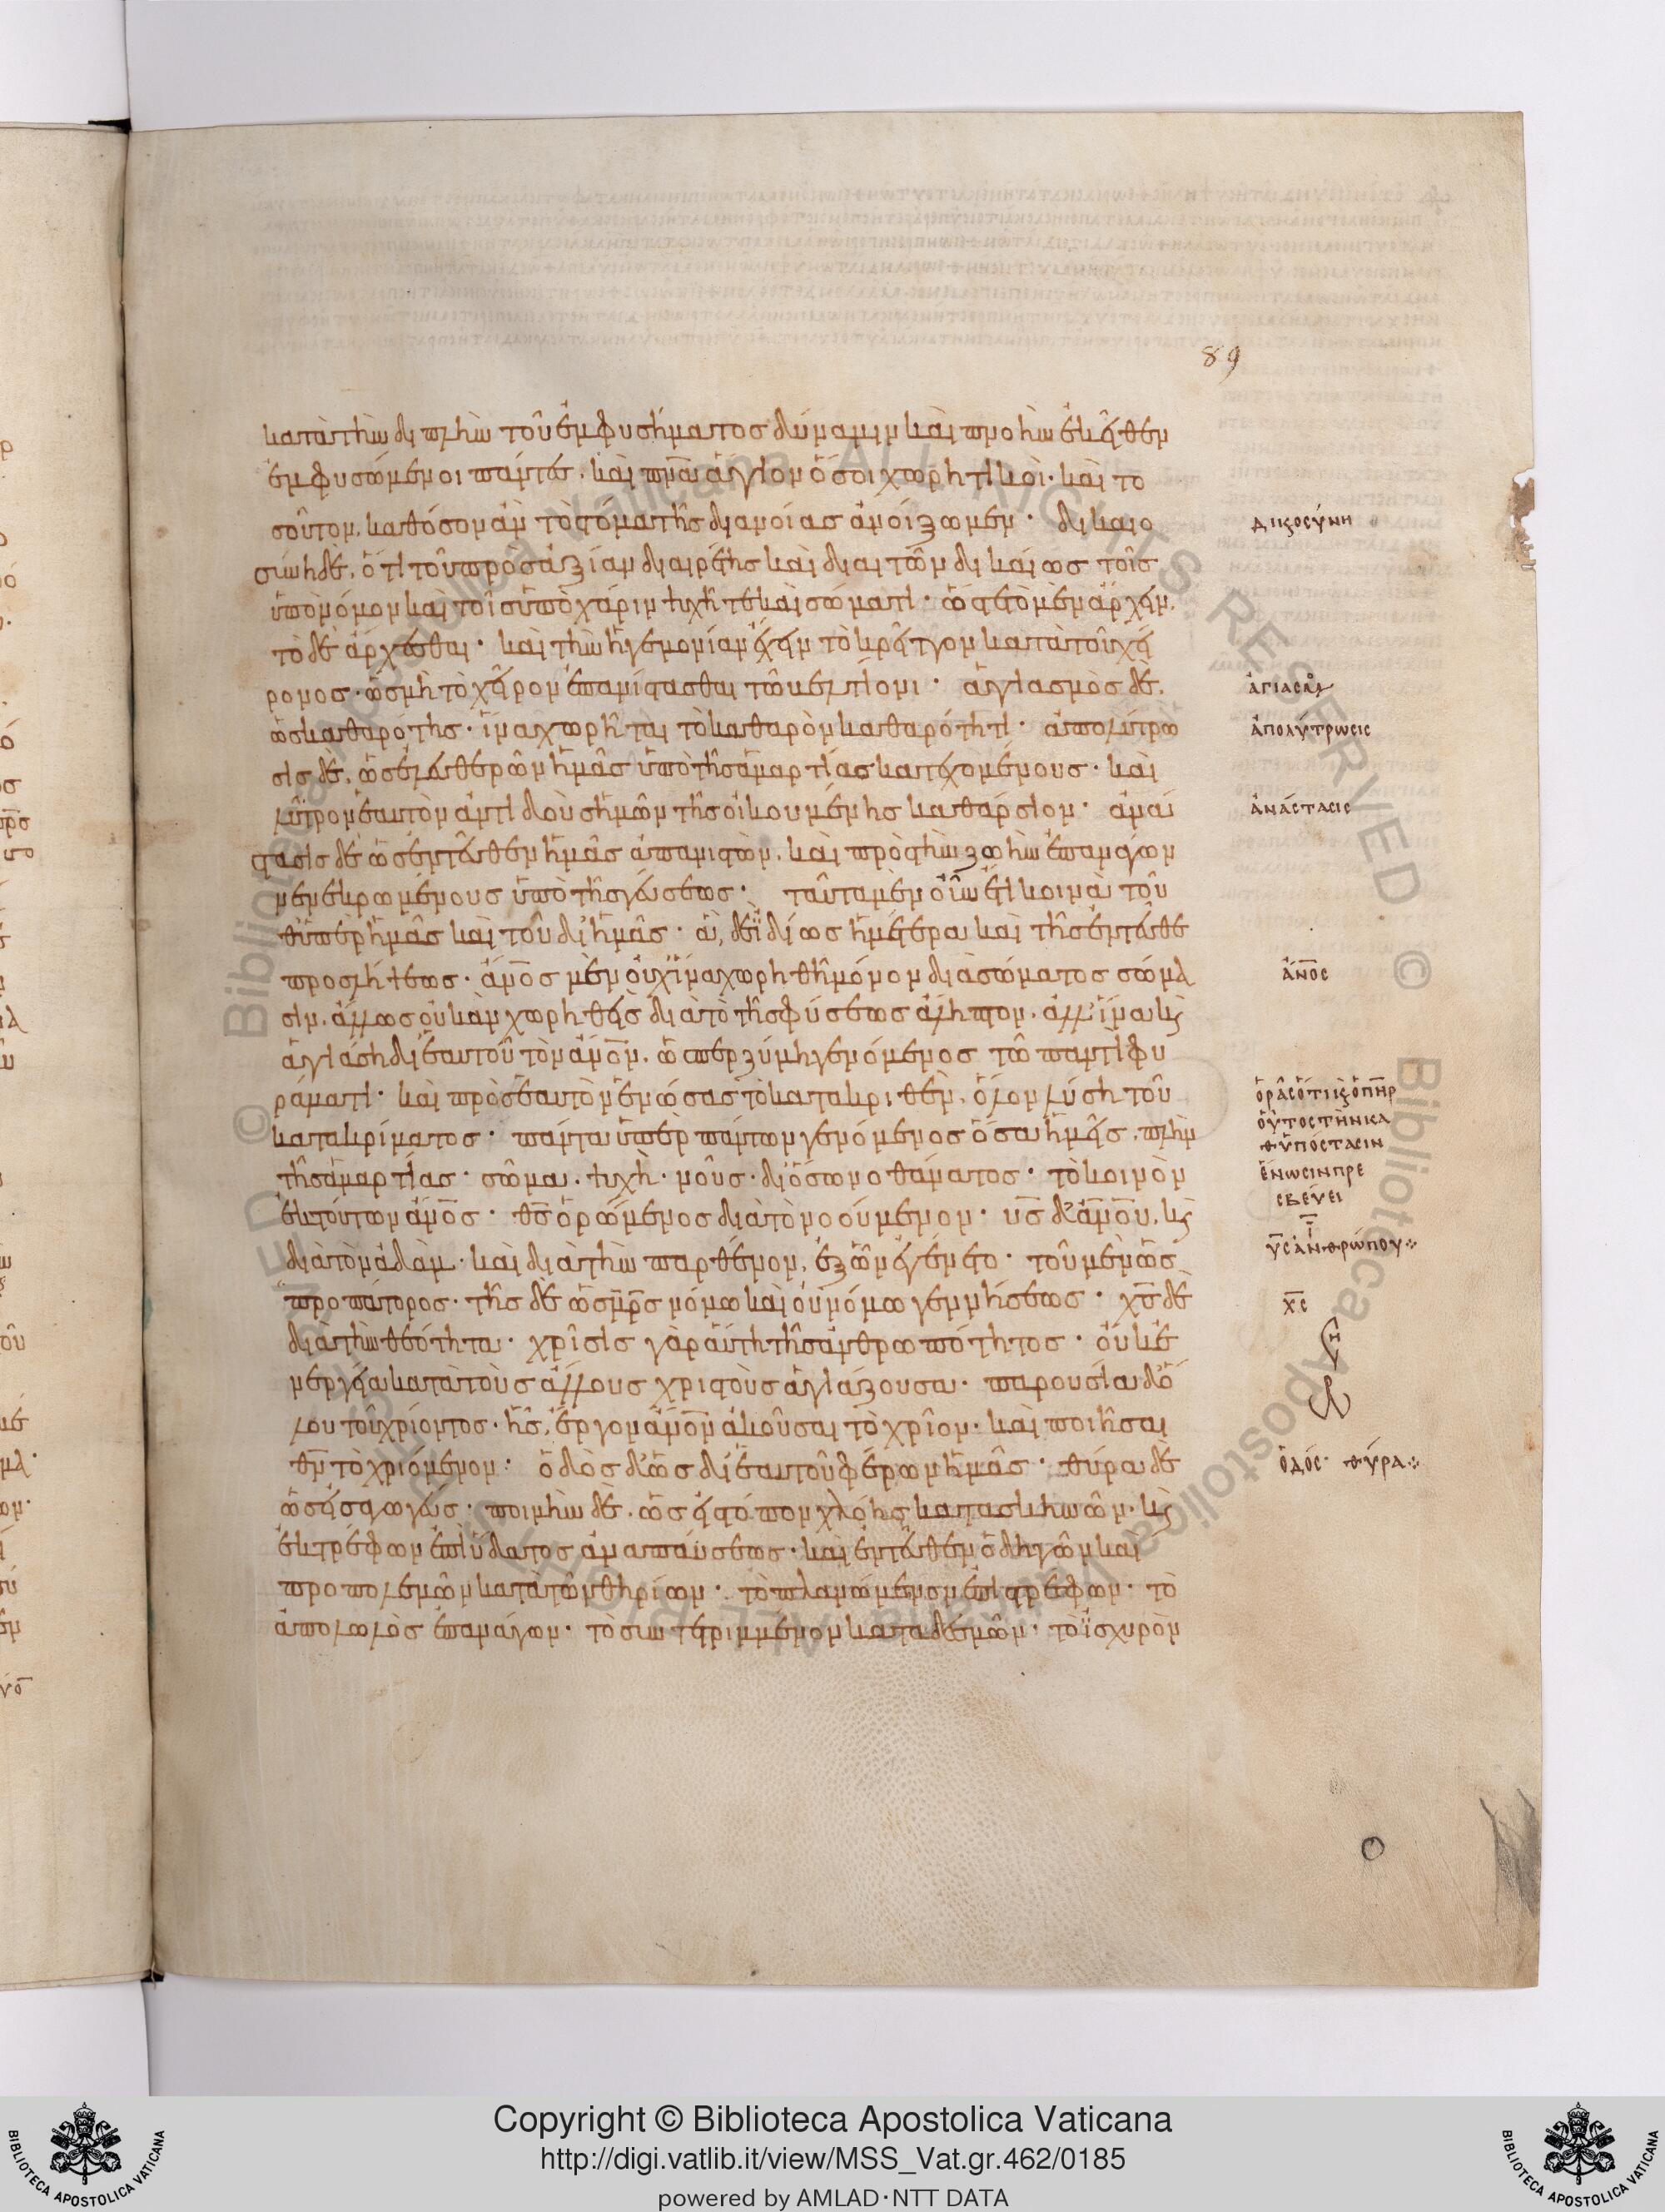 89
κατὰ τὴν διπλὴν τοῦ ἐμφυσήματος δύναμιν καὶ πνοὴν ἐκεῖθεν
ἐμφυσώμενοι πάντες· καὶ πν̅α ἅγιον ὅσοι χωρητικοὶ· καὶ το
σοῦτον, καθόσον ἂν τὸ στόμα τῆς διανοίας ἀνοίξωμεν· δικαιο
σύνη δὲ, ὅτι τοῦ πρὸς ἀξίαν διαιρέτης καὶ διαιτῶν δικαίως τοῖς
ὑπὸ νόμον καὶ τοῖς ὑπὸ χάριν ψυχῆ τε καὶ σώματι· ὥστε τὸ μὲν ἄρχειν,
τὸ δὲ ἄρχεσθαι· καὶ τὴν ἡγεμονίαν ἔχειν τὸ κρεῖττον κατὰ τοῦ χεί
ρονος· ὡς μὴ τὸ χεῖρον ἐπανίστασθαι τῶ βελτίονι· ἁγιασμὸς δὲ,
ὡς καθαρότης· ἵνα χωρῆται τὸ καθαρὸν καθαρότητι· ἀπολύτρω
σις δὲ, ὡς ἐλευθερῶν ἡμᾶς ὑπὸ τῆς ἁμαρτίας κατεχομένους· καὶ
λύτρον ἑαυτὸν ἀντιδοὺς ἡμῶν τῆς οἰκουμένης καθάρσιον· ἀνά
στασις δὲ ὡς ἐντεῦθεν ἡμᾶς ἀπανιστῶν, καὶ πρὸς τὴν ζωὴν ἐπανάγων
νενεκρωμένους ὑπὸ τῆς γεύσεως· ταῦτα μὲν οὖν ἔτι κοινὰ τοῦ
θ' ὑπὲρ ἡμᾶς καὶ τοῦ δι' ἡμᾶς· ἃ, δὲ ἰδίως ἡμέτερα καὶ τῆς ἐντεῦθε
προσλήψεως· ἄν̅ος μὲν οὐχ ἵνα χωρηθῆ μόνον διὰ σώματος σώμα
σιν, ἄλλως οὐκ ἂν χωρηθεὶς διὰ τὸ τῆς φύσεως ἄληπτον, ἀλλ' ἵνα κ
ἁγιάση δι' ἑαυτοῦ τὸν ἄν̅ον, ὥσπερ ζύμη γενόμενος τῶ παντὶ φυ
ράματι· καὶ πρὸς ἑαυτὸν ἑνώσας τὸ κατακριθὲν, ὅλον λύση τοῦ
κατακρίματος· πάντα ὑπὲρ πάντων γενόμενος ὅσα ἡμεῖς, πλὴν
τῆς ἁμαρτίας· σῶμα· ψυχὴ· νοῦς· δι' ὅσων ὁ θάνατος· τὸ κοινὸν
ἐκ τούτων ἄν̅ος· θ̅ς ὁρώμενος διὰ τὸ νοούμενον· υ̅ς δὲ ἀν̅ου, κ
διὰ τὸν ἀδὰμ· καὶ διὰ τὴν παρθένον, ἐξ ὧν ἐγένετο· τοῦ μὲν ὡς
προπάτορος· τῆς δὲ ὡς μ̅ρ̅ς νόμω καὶ οὐ νόμω γεννήσεως· χ̅ς δὲ
διὰ τὴν θεότητα· χρῖσις γὰρ αὕτη τῆς ἀνθρωπότητος· οὐκ ἐ
νεργεία κατὰ τοὺς ἄλλους χριστοὺς ἁγιάζουσα· παρουσία δὲ ὅ
λου τοῦ χρίοντος· ἧς, ἔργον ἄν̅ον ἀκοῦσαι τὸ χρῖον· καὶ ποιῆσαι
θ̅ν τὸ χριόμενον· ὁδὸς δὲ ὡς δι' ἑαυτοῦ φέρων ἡμᾶς· θύρα δὲ
ὡς εἰσαγωγεύς· ποιμὴν δὲ, ὡς εἰς τόπον χλόης κατασκηνῶν· κ
ἐκτρέφων ἐπὶ ὕδατος ἀναπαύσεως· καὶ ἐντεῦθεν ὁδηγῶν καὶ
προπολεμῶν κατὰ τῶν θηρίων· τὸ πλανώμενον ἐπιστρέφων· τὸ
ἀπολωλὸς ἐπανάγων· τὸ συντετριμμένον καταδεσμῶν· τὸ ἰσχυρὸν
δικαιοσύνη
ἁγιασμός
ἀπολύτρωσις
ἀνάστασις
ἄν̅ος
ὁρᾶς ὅτι κ ὁ π̅ηρ
οὗτος τὴν κα
θ' ὑπόστασιν
ἕνωσιν πρε
σβεύει
υ̅ς ἀνθρώπου
χ̅ς
ὁδός· θύρα
Copyright © Biblioteca Apostolica Vaticana
http://digi.vatlib.it/view/MSS_Vat.gr.462/0185
powered by AMLAD·NTT DATA
BIBLIOTECA APOSTOLICA VATICANA
BIBLIOTECA APOSTOLICA VATICANA